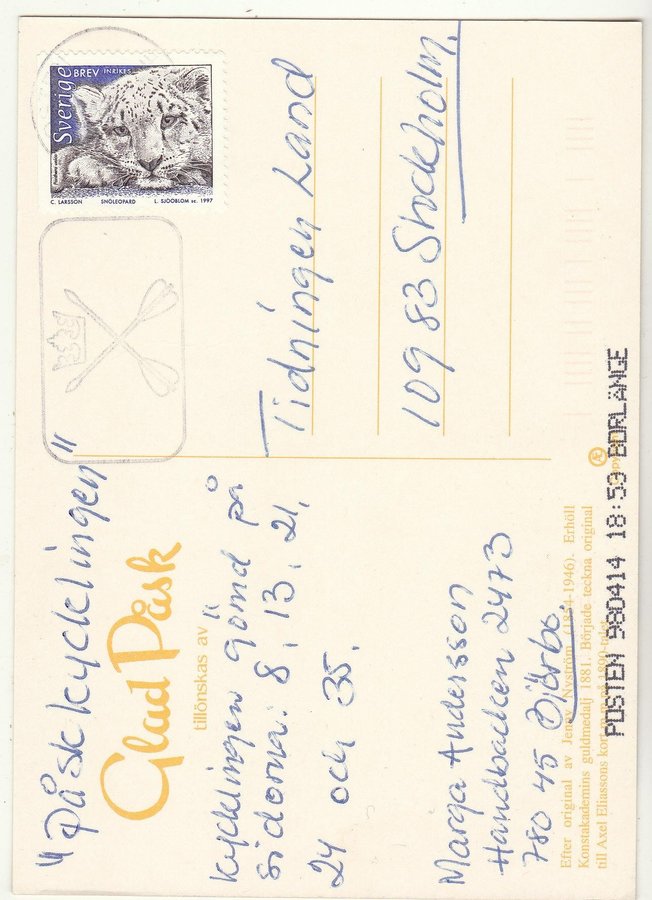 "Påskkycklingen"
Glad Påsk
tillönskas av
Kycklingen gömd på
sidorna: 8, 13, 21,
24 och 35.
Marga Andersson
2473
780 45 Björbo.
Efter original av Jenny Nyström (1854-1946). Erhöll
Konstakademins guldmedalj 1881. Började teckna original
till Axel Eliassons
Sverige
BREV INRIKES
C. LARSSON SNÖLEOPARD L. SJÖÖBLOM sc. 1997
Tidningen Land
109 83 Stockholm.
POSTEN 980414 18:59 BORLÄNGE